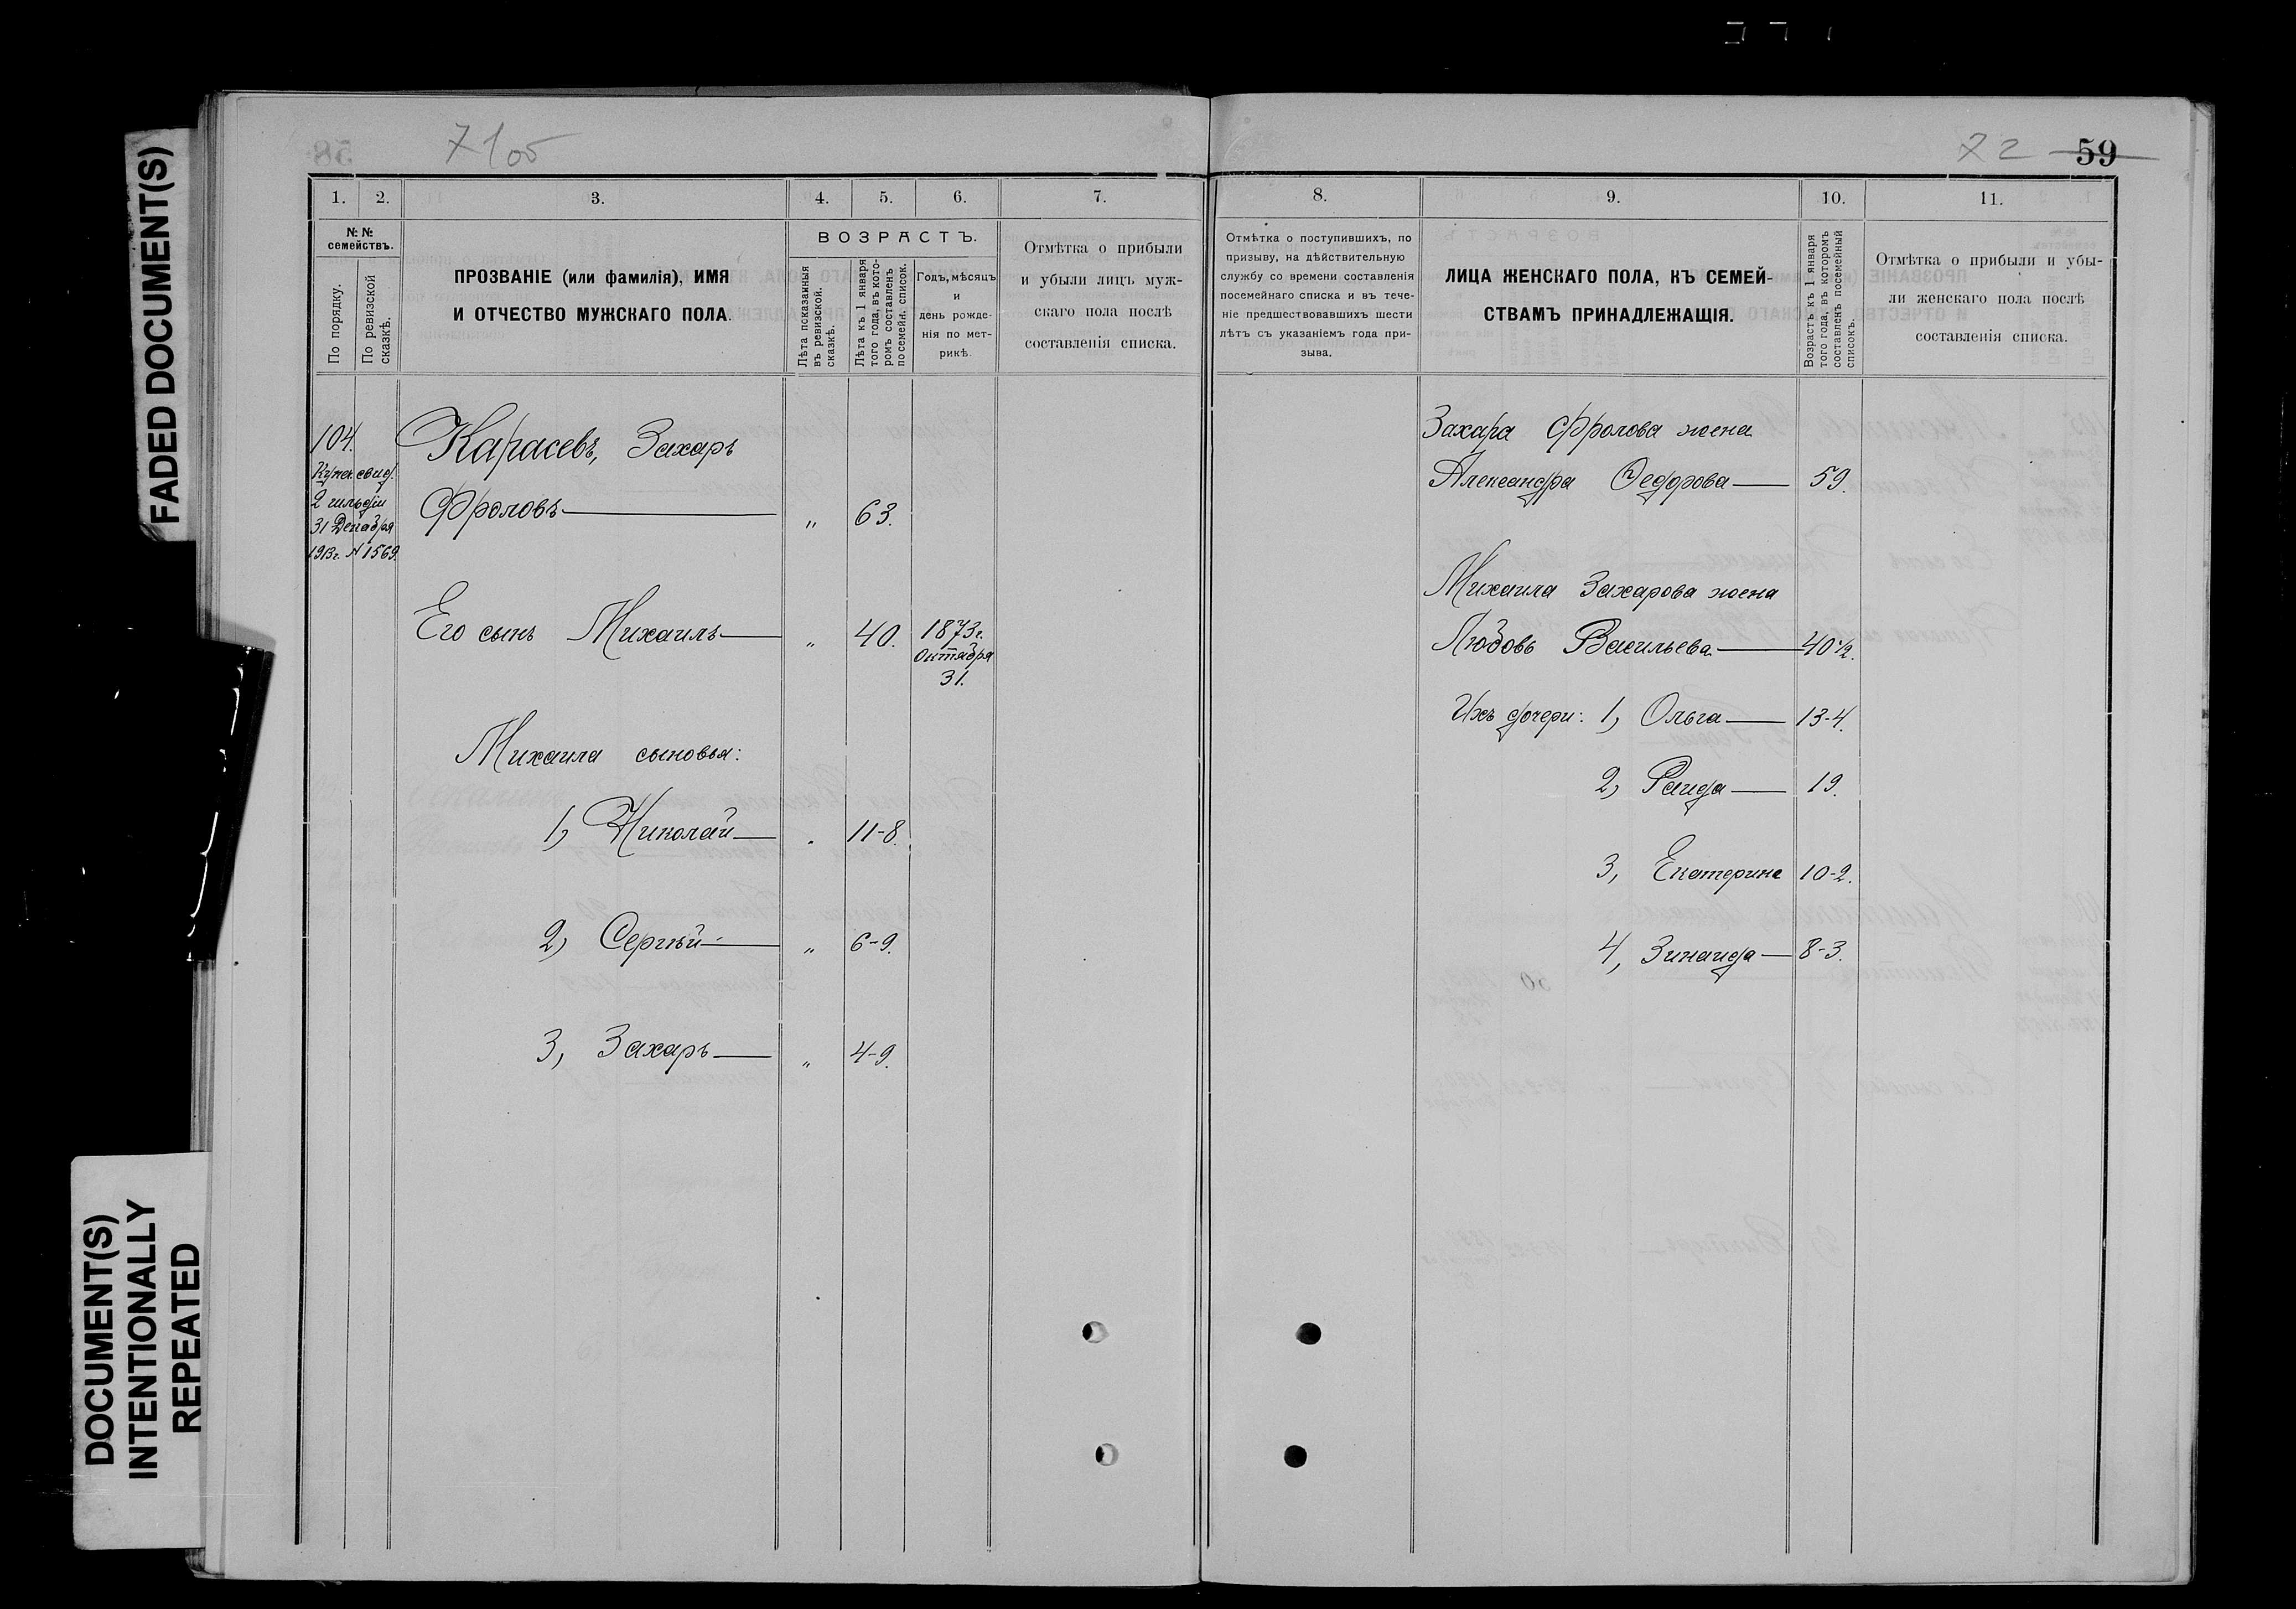 FADED DOCUMENT(S)
DOCUMENT(S)
INTENTIONALLY
REPEATED
71об
1. 2. 3. 4. 5. 6. 7.
№№
семействъ.
По порядку.
По ревизской
сказкѣ.
ПРОЗВАНІЕ (или фамилія), ИМЯ
И ОТЧЕСТВО МУЖСКАГО ПОЛА.
ВОЗРАСТЪ.
Лѣта показанныя
въ ревизской.
сказкѣ.
Лѣта къ 1 января
того года, въ кото-
ромъ составленъ
посемейн. список.
Годъ, мѣсяцъ
и
день рожде-
нія по мет-
рикѣ.
Отмѣтка о прибыли
и убыли лицъ муж-
скаго пола послѣ
составленія списка.
104.
Купеч. свид.
2 гильдіи
31 Декабря
1913г. № 1569.
Карасевъ, Захаръ
Фроловъ — „ 63.
Его сынъ Михаилъ — „ 40. 1873г.
Октября
31.
Михаила сыновья:
1, Николай — „ 11-8.
2, Сергѣй — „ 6-9.
3, Захаръ — „ 4-9.
72 59
8. 9. 10. 11.
Отмѣтка о поступившихъ, по
призыву, на дѣйствительную
службу со времени составленія
посемейнаго списка и въ тече-
ніе предшествовавшихъ шести
лѣтъ съ указаніемъ года при-
зыва.
ЛИЦА ЖЕНСКАГО ПОЛА, КЪ СЕМЕЙ-
СТВАМЪ ПРИНАДЛЕЖАЩІЯ.
Возрастъ къ 1 января
того года, въ которомъ
составленъ посемейный
списокъ.
Отмѣтка о прибыли и убы-
ли женскаго пола послѣ
составленія списка.
Захара Фролова жена
Александра Федорова — 59.
Михаила Захарова жена
Любовь Васильева — 40½.
Ихъ дочери: 1, Ольга — 13-4.
2, Раида — 19.
3, Екатерина 10-2.
4, Зинаида — 8-3.